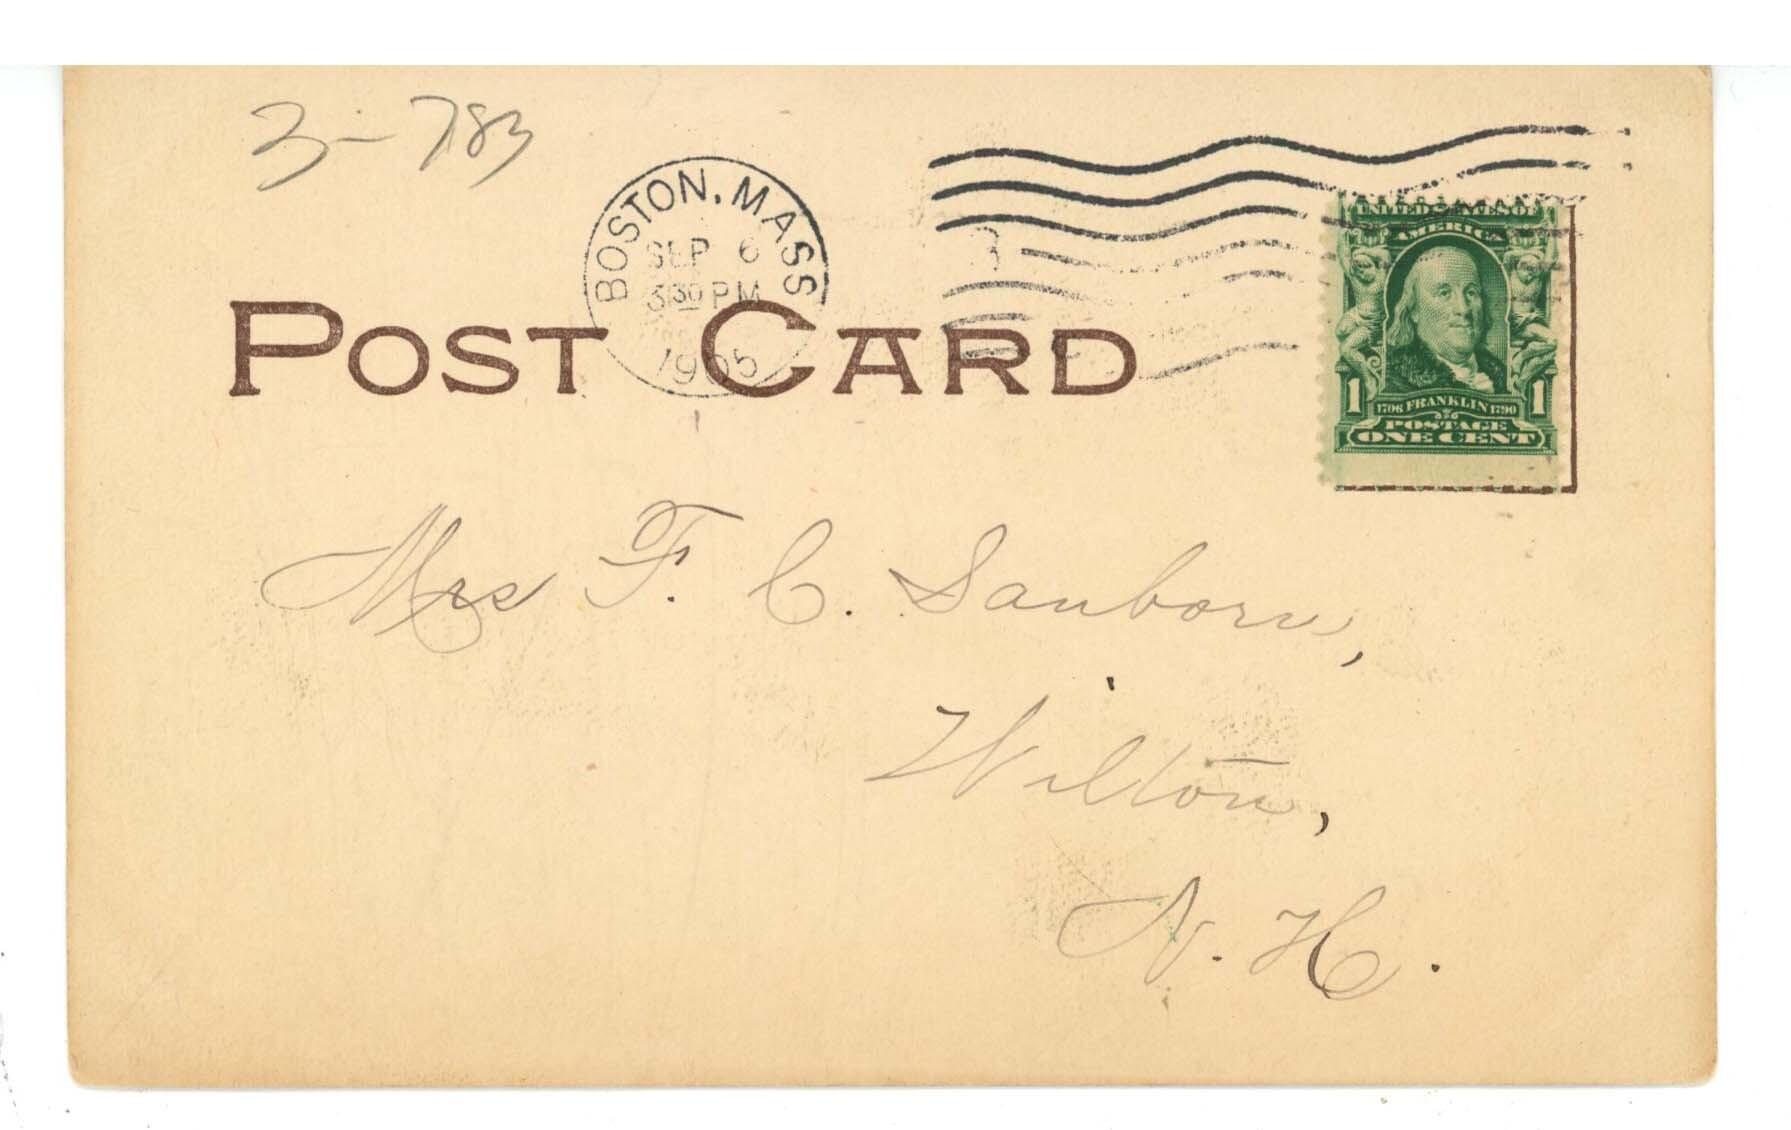 3-783
BOSTON, MASS
SEP 6
3 30 PM
1905
POST CARD
UNITED STATES OF
AMERICA
1 1
1706 FRANKLIN 1790
POSTAGE
ONE CENT
Mrs F. C. Sanborn,
Wilton,
N. H.